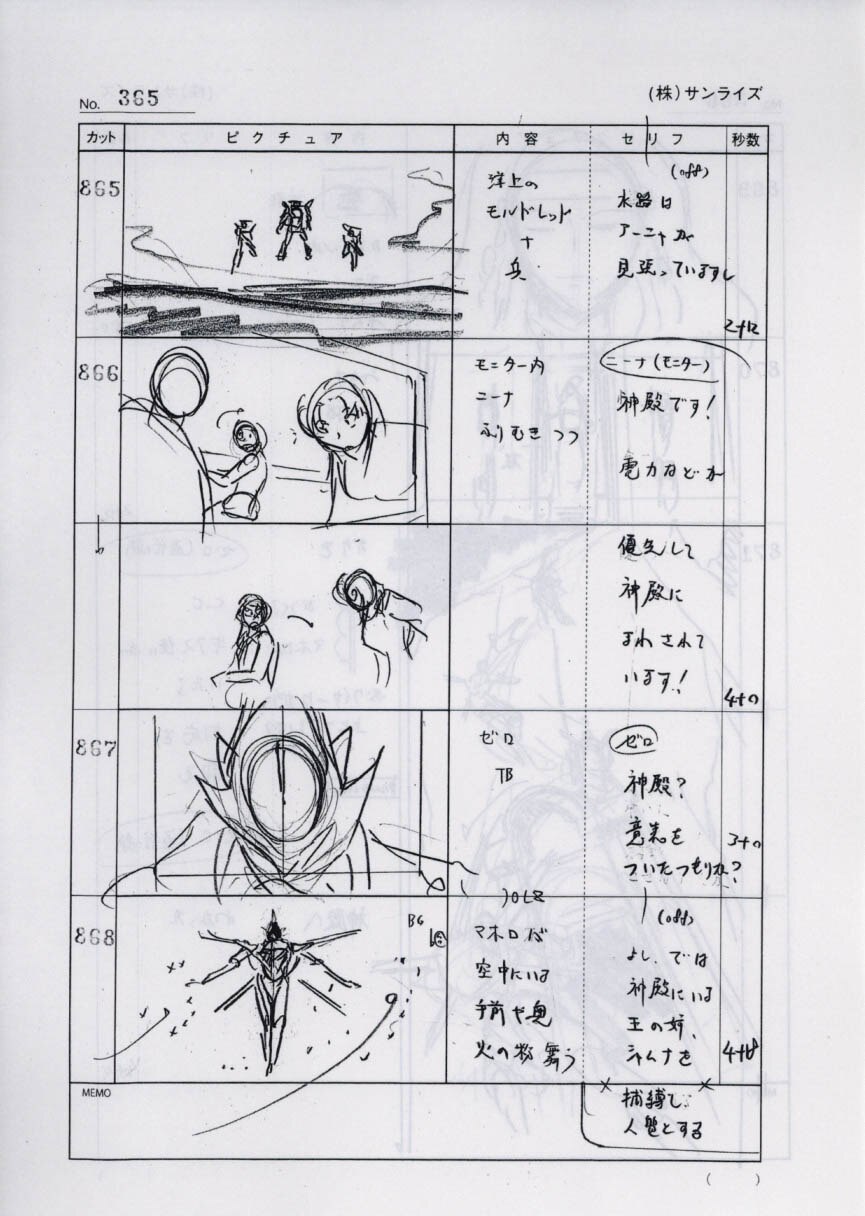 No. 365
(株)サンライズ
カット ピクチュア 内容 セリフ 秒数
865
洋上の
モルドレッド
+
兵
(off)
水路は
アーニャが
見張っていますし
2+12
866
モニター内
ニーナ
ふりむきつつ
ニーナ(モニター)
神殿です!
電力などが
優先して
神殿に
まわされて
います!
4+0
867
ゼロ
TB
ゼロ
神殿?
意表を
ついたつもりか?
3+0
868
BG
)OL
マホロバ
空中にいる
手前や奥
火の粉舞う
(off)
よし、では
神殿にいる
王の姉、
シャムナを
捕縛し
人質とする
MEMO
( )